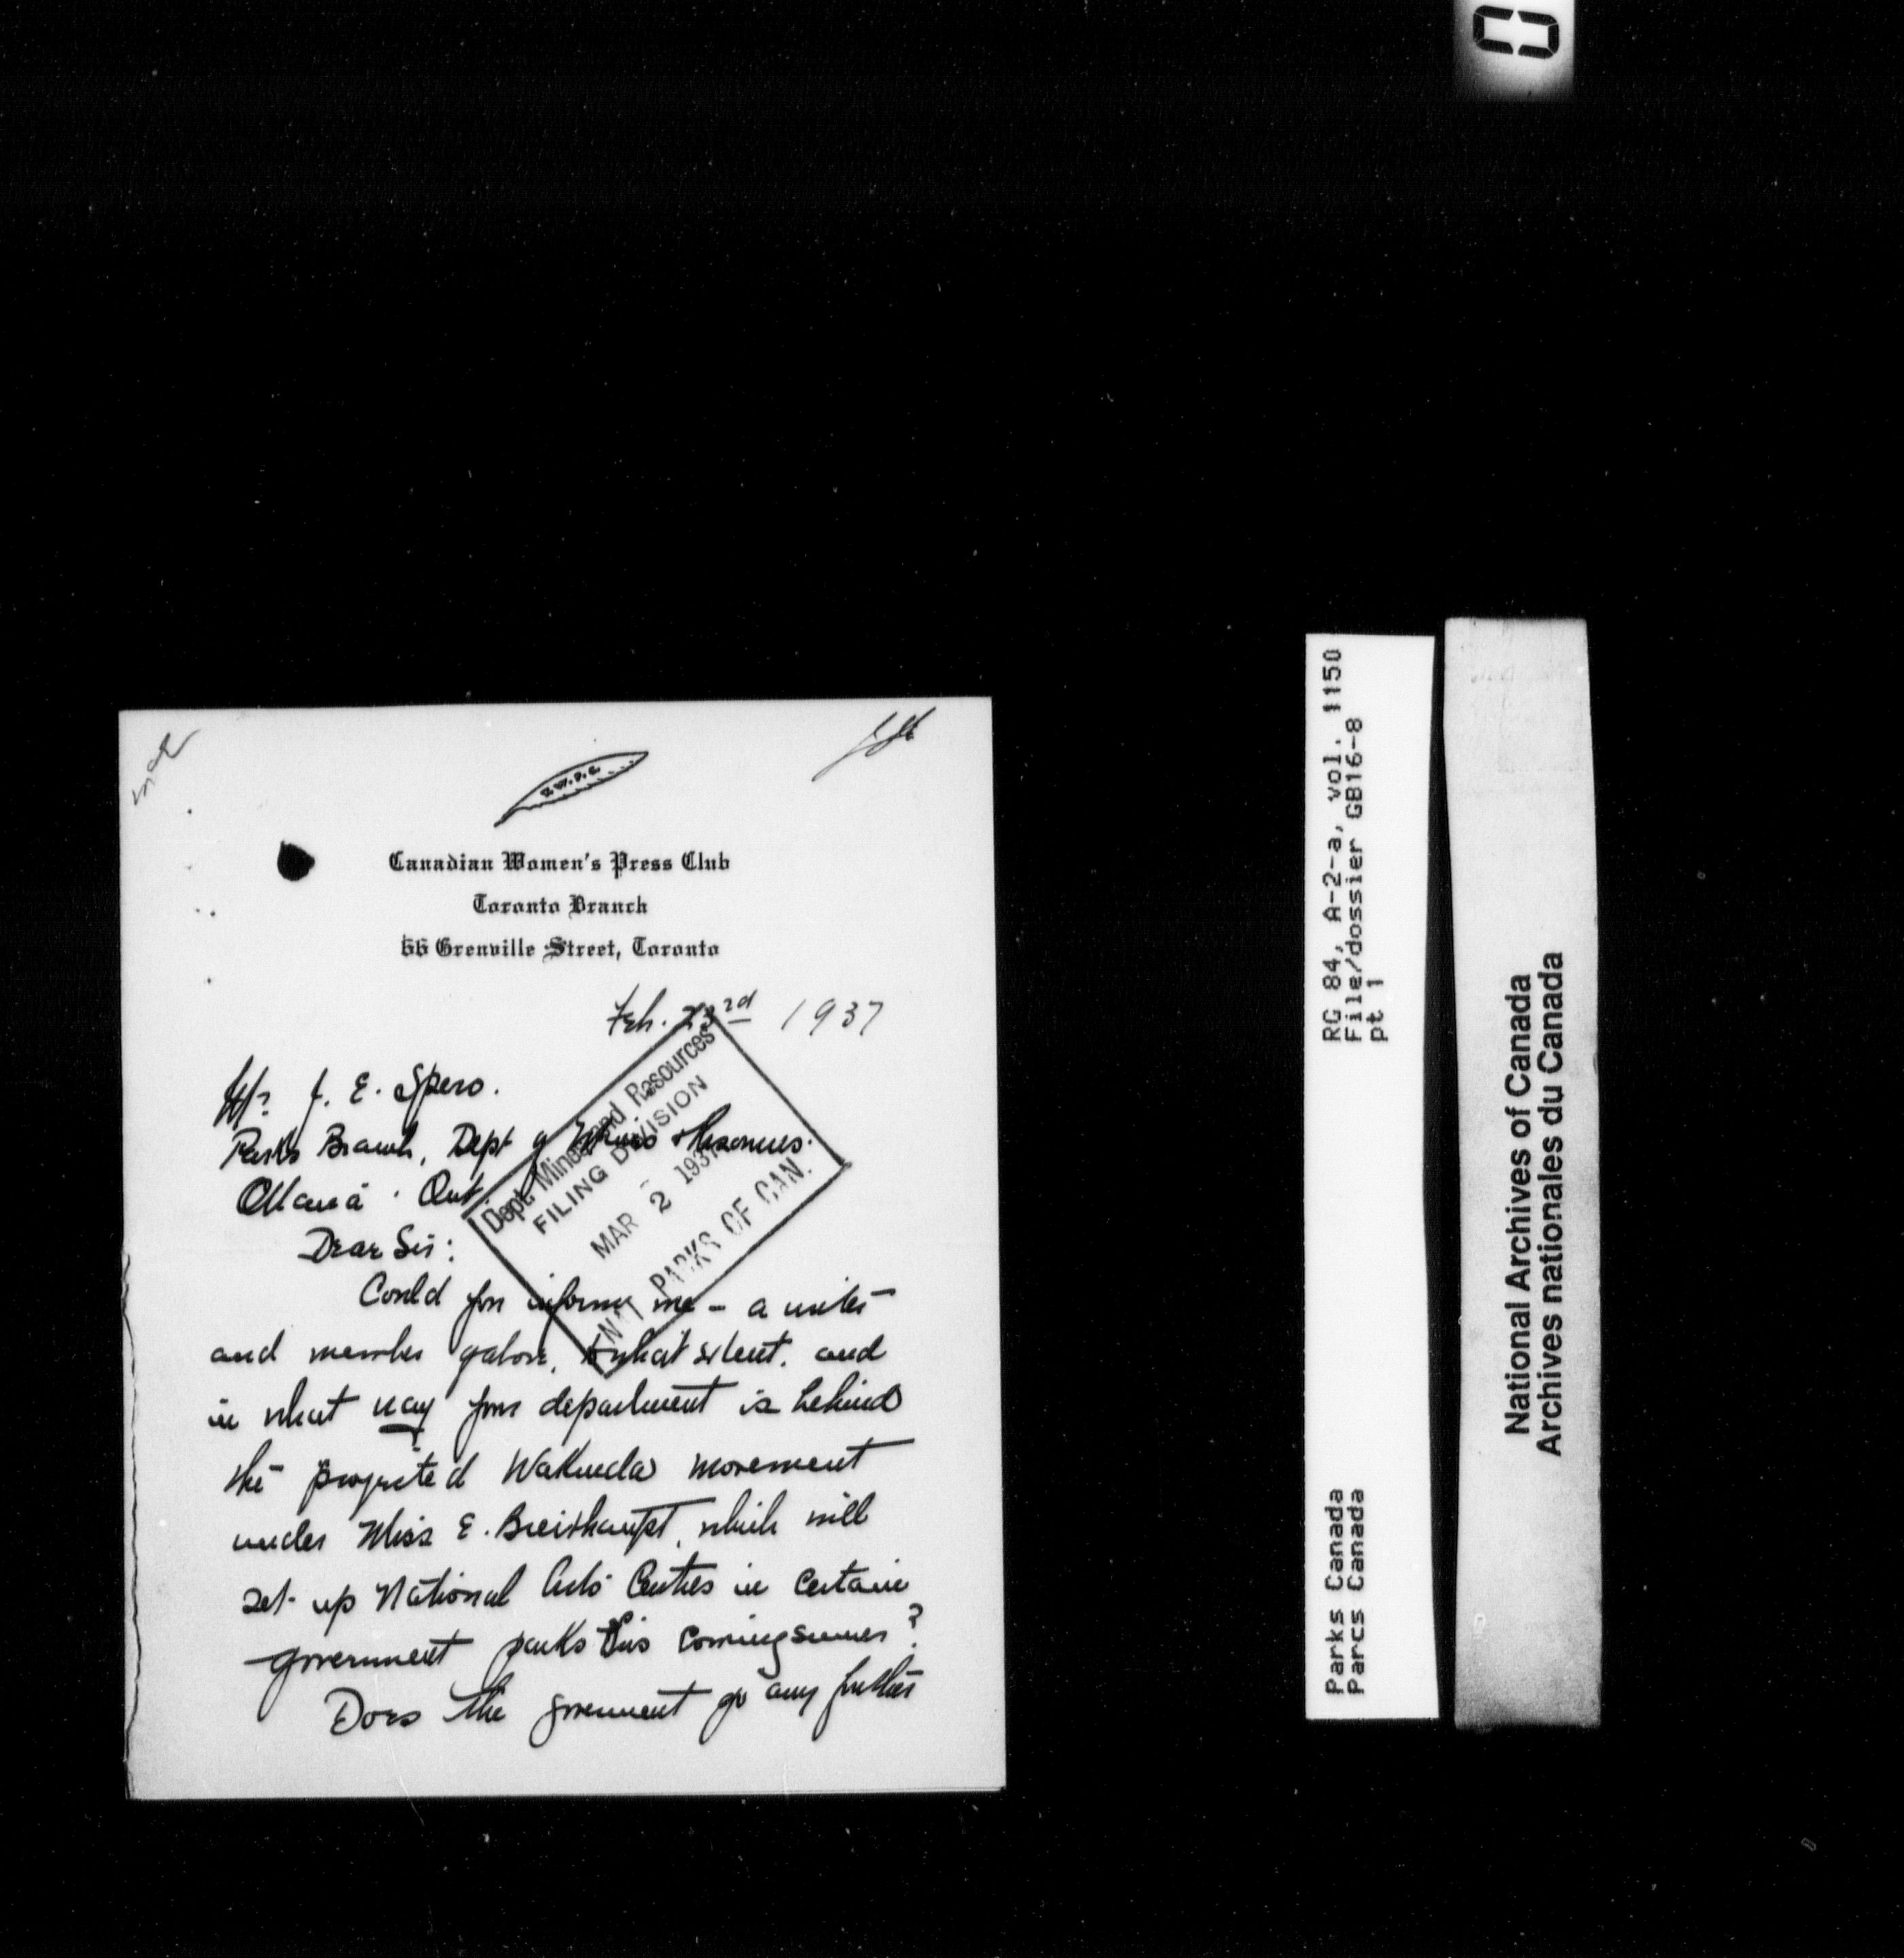 C.W.P.C.
Canadian Women's Press Club
Toronto Branch
66 Grenville Street, Toronto
Feb. 23rd 1937
Mr. J. E. Spero.
Parks Branch, Dept of Mines & Resources.
Ottawa. Ont.
Dear Sir:
Could you inform me – a writer
and member of above, to what extent, and
in what way your department is behind
the projected Wakunda movement
under Miss E. Breithaupt, which will
set up National Arts Centres in certain
government parks this coming summer?
Does the government go any further
Dept. Mines and Resources
FILING DIVISION
MAR 2 1937
NAT PARKS OF CAN.
RG 84, A-2-a, vol. 1150
File/dossier GB16-8
pt 1
Parks Canada
Parcs Canada
National Archives of Canada
Archives nationales du Canada
0